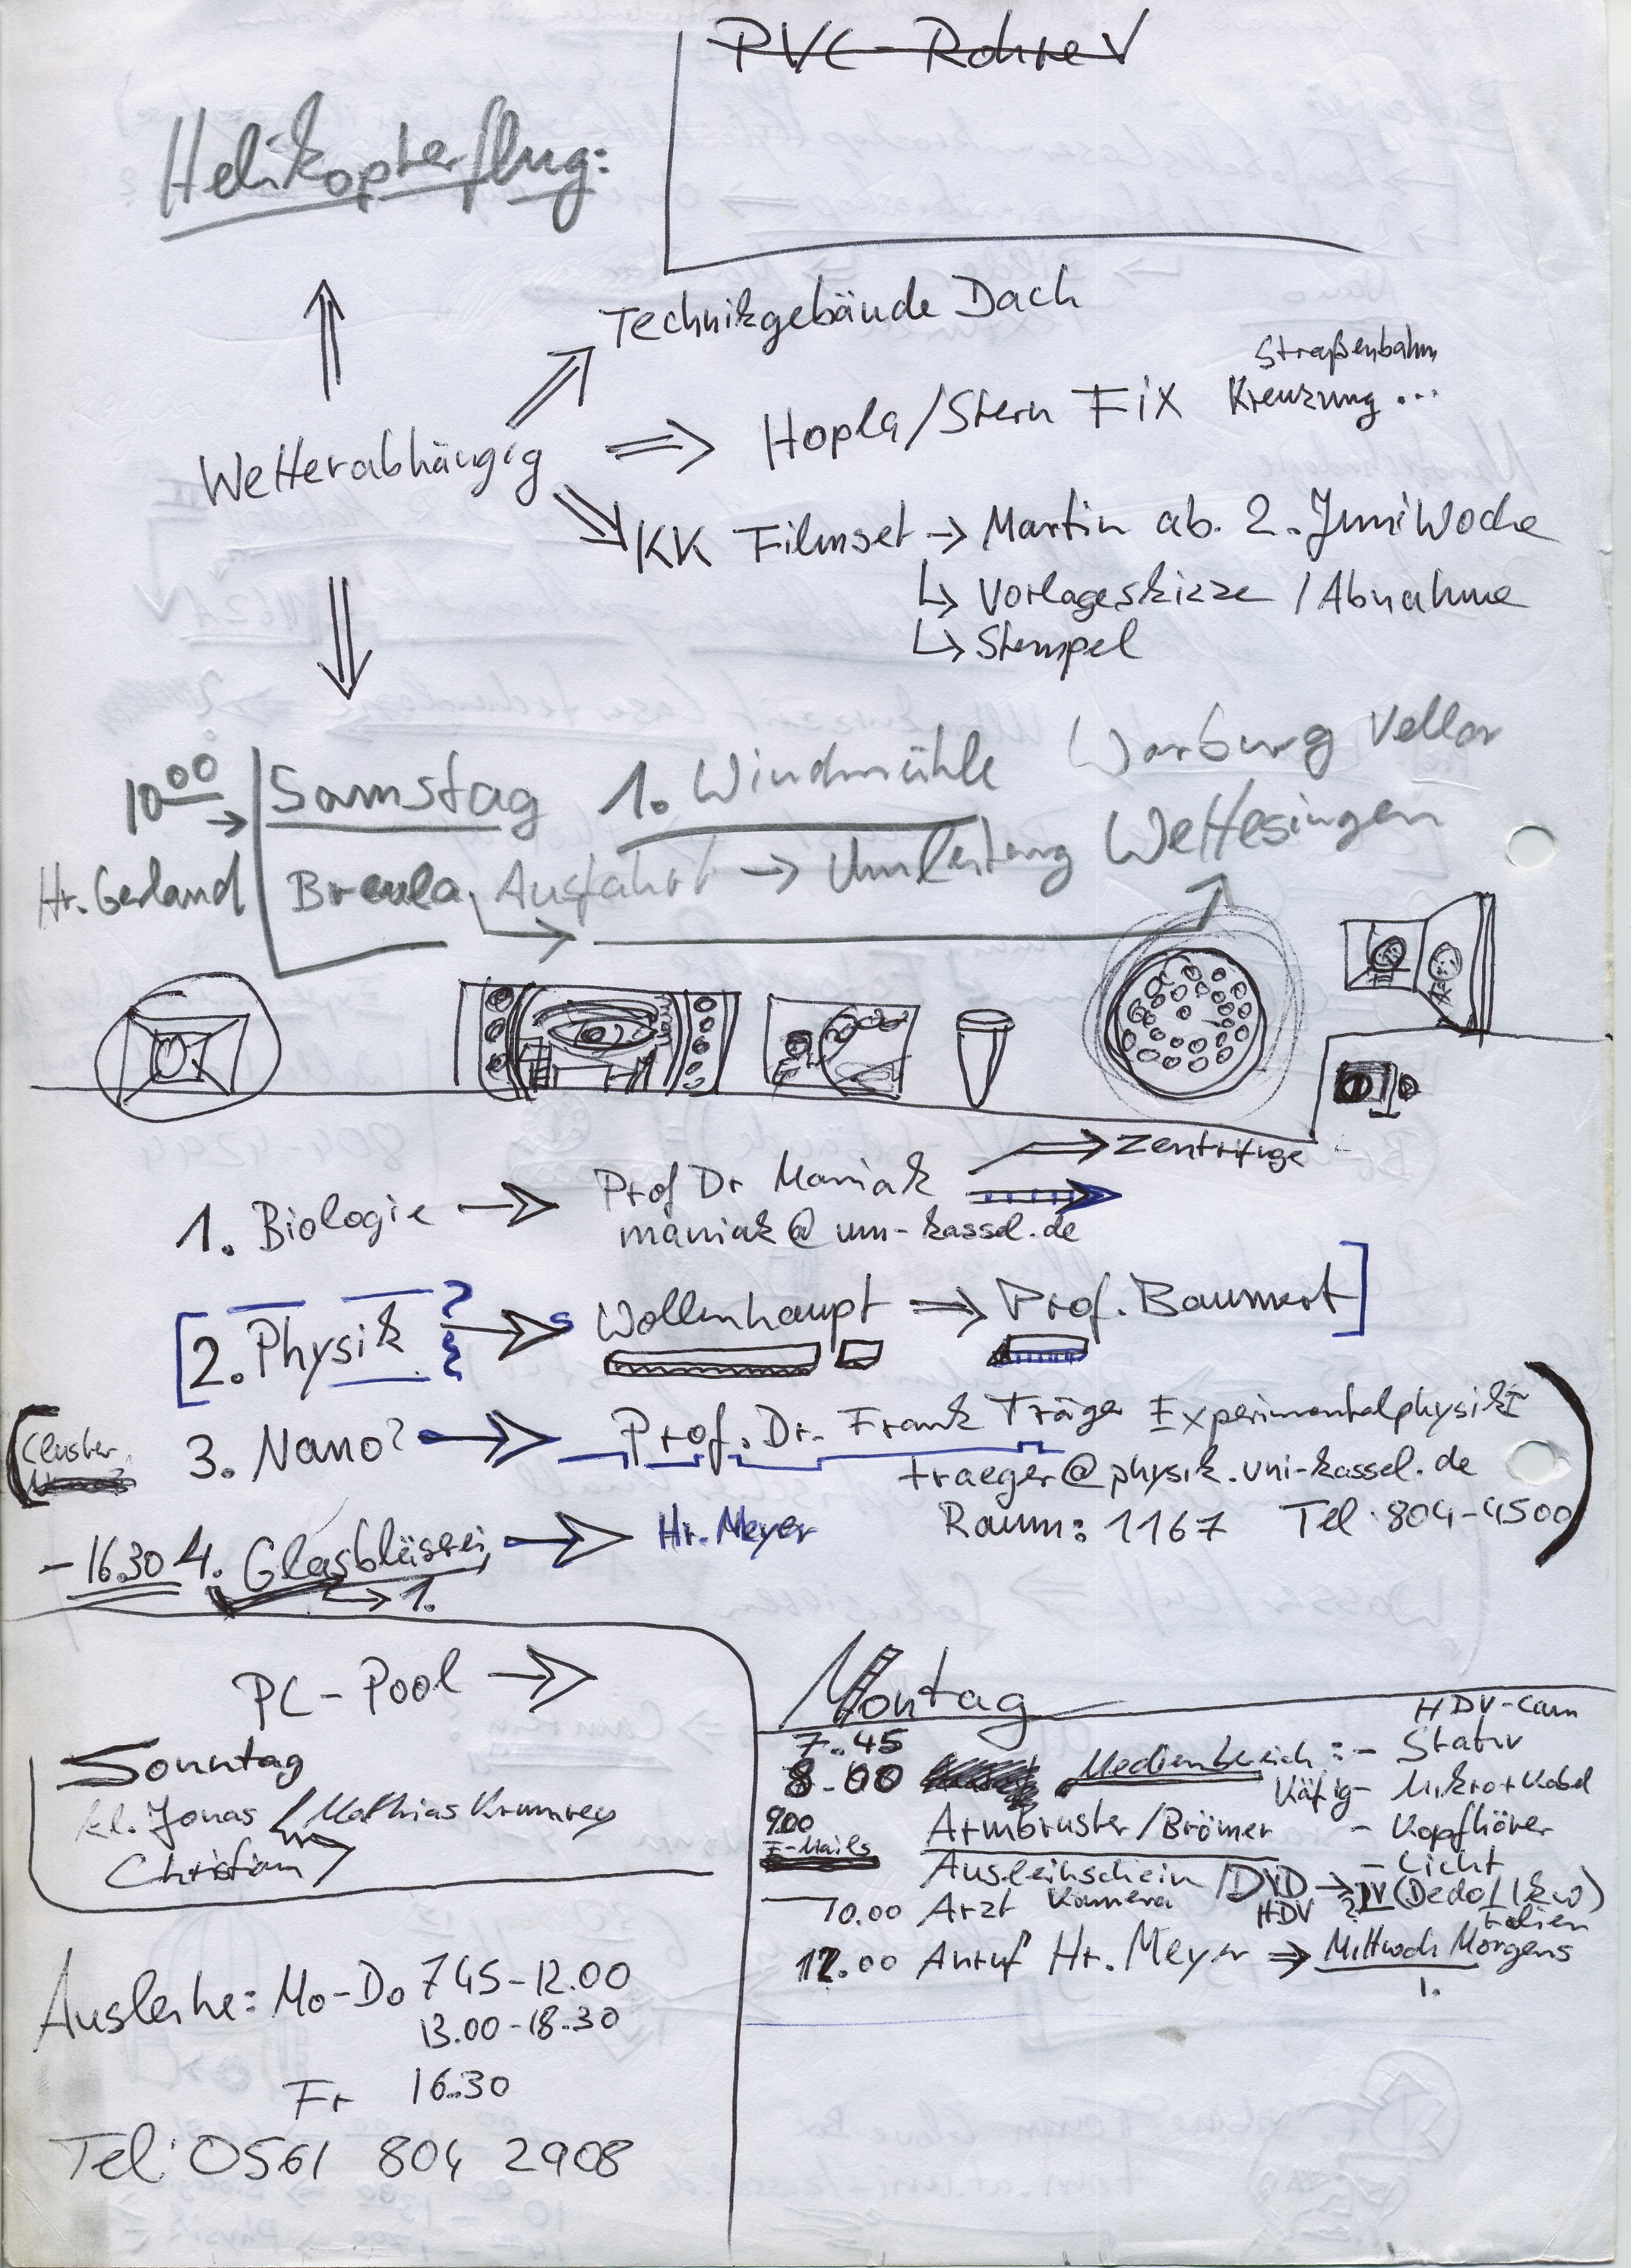 PVC-Rohre √
Helikopterflug:
Technikgebäude Dach
Straßenbahn
Hopla/Stern Fix Kreuzung ...
Wetterabhängig
KK Filmset → Martin ab. 2. Juni Woche
↳ Vorlageskizze / Abnahme
↳ Stempel
10 00 → Samstag 1. Windmühle Warburg
Hr. Gerland Breula Ausfahrt → Umleitung Wettesingen
→ Zentrifuge
1. Biologie → Prof Dr Maniak
maniak@uni-kassel.de
[2. Physik → Wollenhaupt ⇒ Prof. Baumert]
(Cluster 3. Nano? → Prof. Dr. Frank Träger Experimentalphysik I
traeger@physik.uni-kassel.de
Raum: 1167 Tel: 804-4500)
-16.30 4. Glasbläserei → Hr. Meyer
↳ 1.
PC-Pool →
Sonntag
kl. Jonas / Mathias Krumrey
Christian
Ausleihe: Mo-Do 7 45-12.00
13.00-18.30
Fr 16.30
Tel: 0561 804 2908
Montag
HDV-Cam
7.45
8.00 Medienbereich: - Stativ
Käfig - Mikro + Kabel
9.00 Armbruster/Brömer - Kopfhörer
E-Mails
Ausleihschein /DVD → - Licht
Kamera HDV (Dedo/1kw)
10.00 Arzt
12.00 Anruf Hr. Meyer ⇒ Mittwoch Morgens
1.